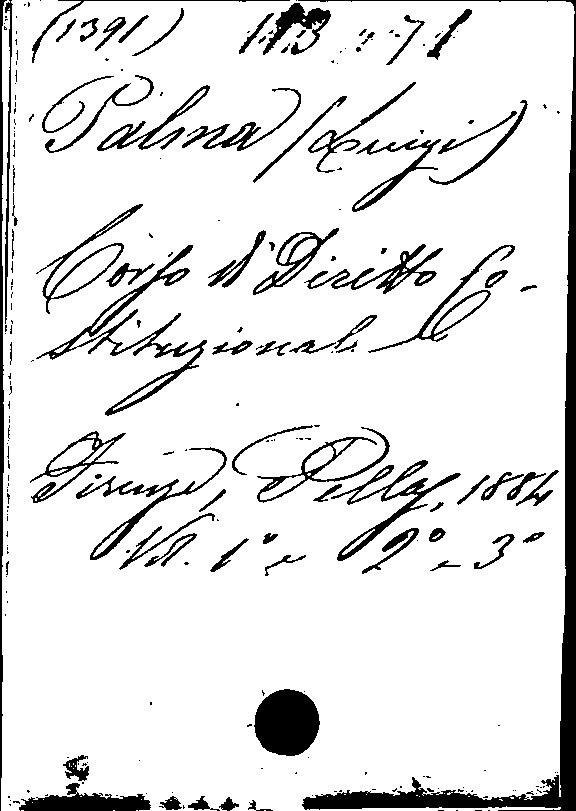 (1391)
Palma (Luigi)
Corso di Diritto Co-
stituzionale
Firenze, Pellas, 1884
Vol. 1° e 2° e 3°